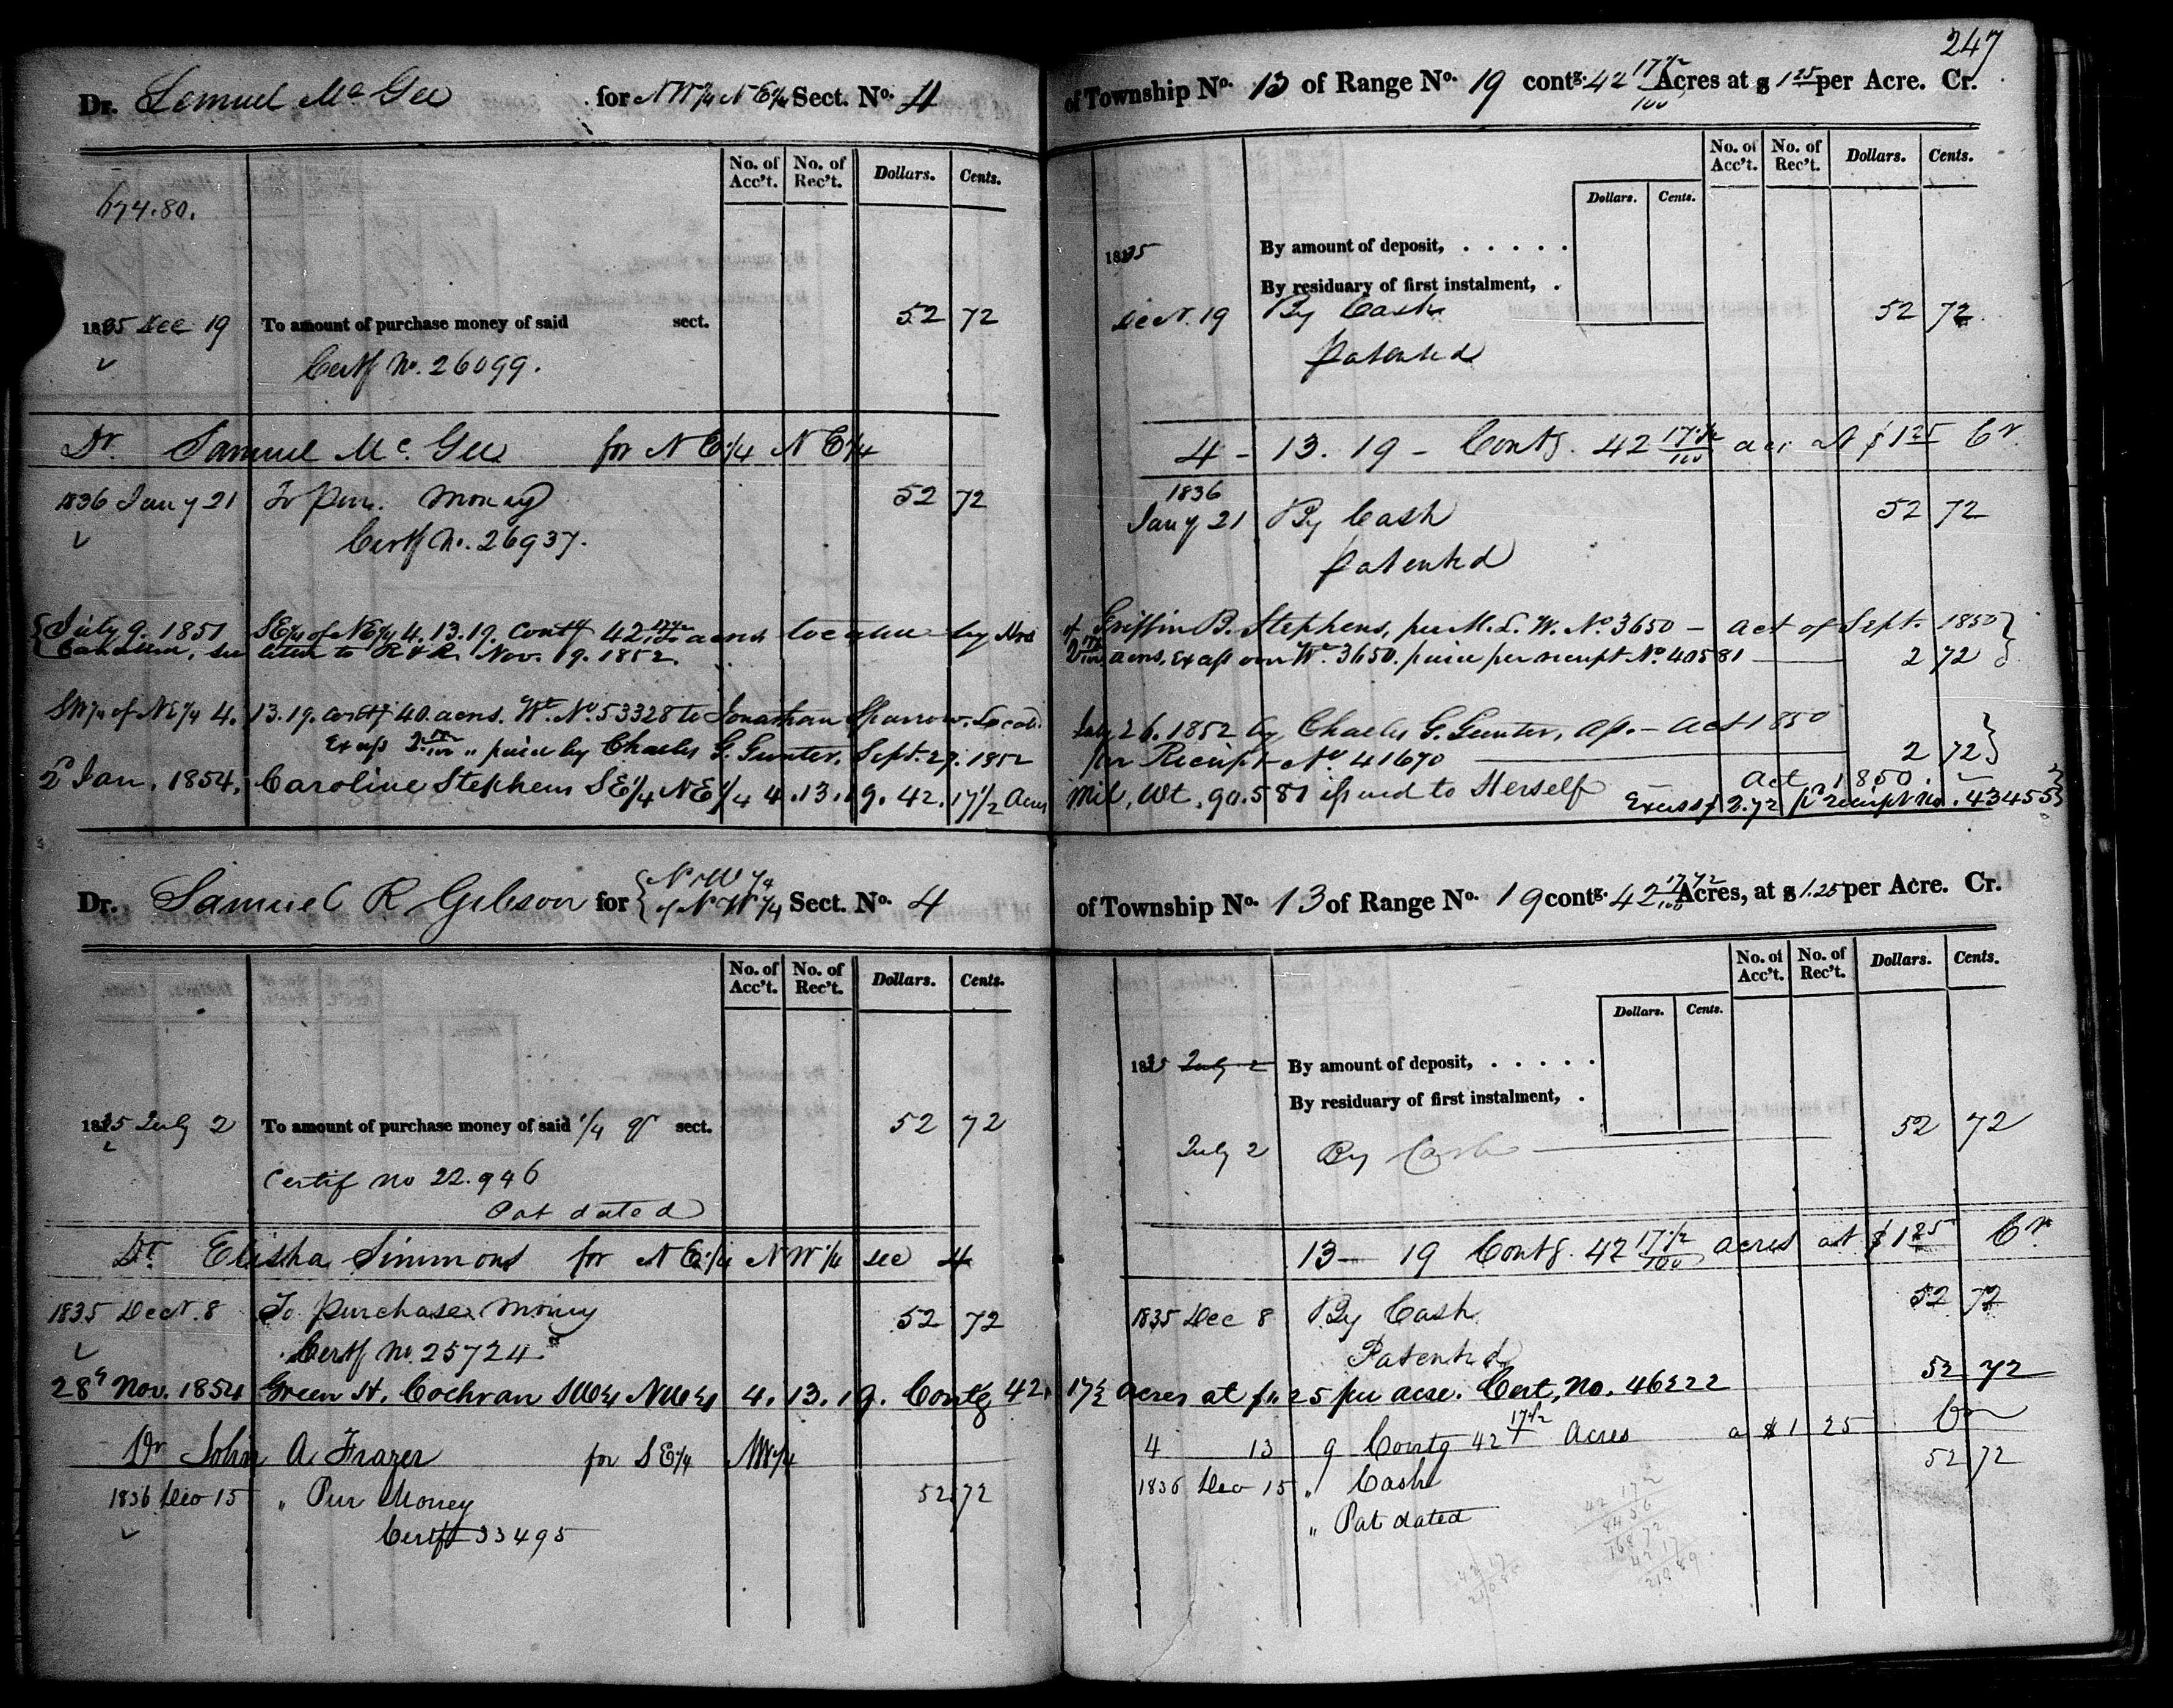 247
Dr. Lemuel McGee for NW¼ NE¼ Sect. No. 4 of Township No. 13 of Range No. 19 contg. 42 17½/100 Acres at $ 1 25 per Acre. Cr.
No. of Acc't. No. of Rec't. Dollars. Cents. No. of Acc't. No. of Rec't. Dollars. Cents.
Dollars. Cents.
674.80.
1835 By amount of deposit, . . . . .
By residuary of first instalment, .
1835 Dec 19 To amount of purchase money of said sect. 52 72 Decr. 19 By Cash 52 72
Certf No. 26099. Patented
Dr Samuel Mc. Gee for NE¼ NE¼ 4 - 13. 19 - Contg. 42 17½/100 acr at $1 25 Cr.
1836
1836 Jany 21 To Pur. Money 52 72 Jany 21 By Cash 52 72
Certf No. 26937. Patented
July 9. 1851 SE¼ of NE¼ 4. 13. 19. Contg 42 17½/100 acres by of Griffin B. Stephens, per M.L.W. No. 3650 - act of Sept. 1850
to R & R. Nov. 19. 1852. 2 17½/100 acres, Excess over Wt. 3650. paid per receipt No. 40581 2 72
SW¼ of NE¼ 4. 13. 19. contg 40 acres. Wt. No. 53328 to Jonathan Sparrow. Locatd. July 26. 1852 by Charles G. Gunter, As. - act 1850
Excess 2 17½/100 " paid by Charles G. Gunter, Sept. 29. 1852 per Receipt No 41670 2 72
2d Jan. 1854, Caroline Stephens SE¼ NE¼ 4. 13. 19. 42. 17½ Acres Mil, Wt, 90.581 issued to Herself Act 1850.
Excess $2.72 pr receipt No. 43455
Dr. Samuel R Gibson for NW¼ of NW¼ Sect. No. 4 of Township No. 13 of Range No. 19 contg. 42 17½/100 Acres, at $ 1.25 per Acre. Cr.
No. of Acc't. No. of Rec't. Dollars. Cents. No. of Acc't. No. of Rec't. Dollars. Cents.
Dollars. Cents.
1835 July 2 By amount of deposit, . . . . .
By residuary of first instalment, .
1835 July 2 To amount of purchase money of said ¼ qr sect. 52 72 July 2 By Cash 52 72
Certif no 22.946
Pat dated
Dr. Elisha Simmons for NE¼ NW¼ sec 4 13 - 19 Contg. 42 17½/100 acres at $1 25 Cr.
1835 Decr. 8 To Purchase Money 52 72 1835 Dec 8 By Cash 52 72
Certf No. 25724 Patented
28th Nov. 1854 Green H. Cochran SW¼ NW¼ 4. 13. 19. Contg 42. 17½ acres at $1.25 per acre. Cert, No. 46222 52 72
Dr John A. Frazer for SE¼ NW¼ 4 13 9 Contg 42 17½ Acres a $1 25 Cr
1836 Dec 15 " Pur Money 52 72 1836 Dec 15 " Cash 52 72
Certft 33495 " Pat dated